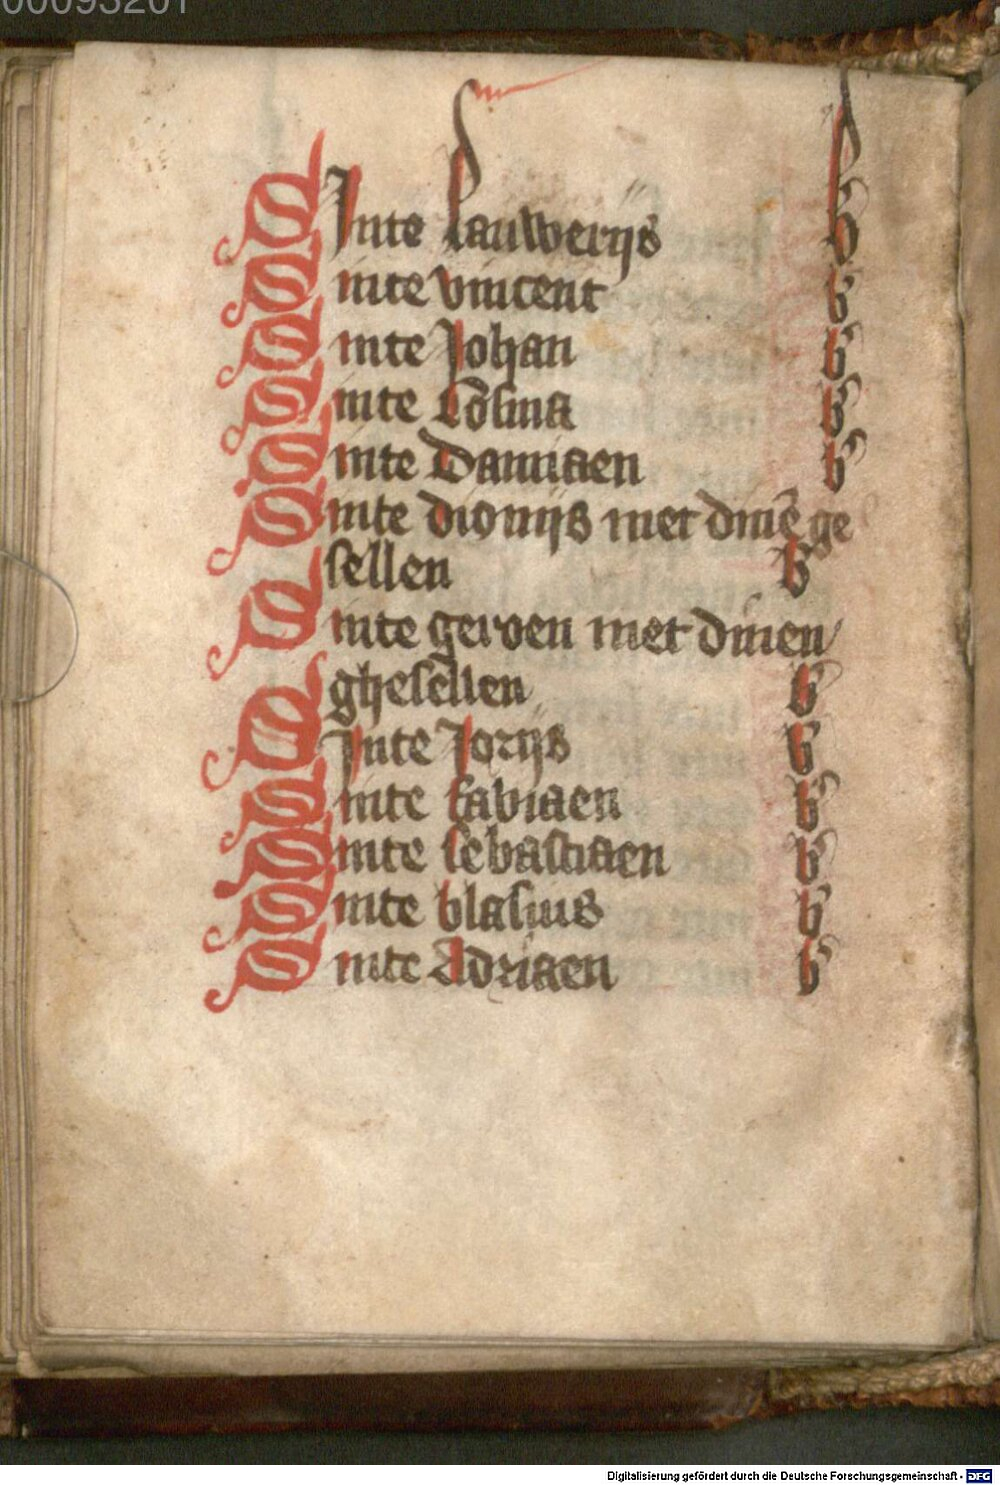 00093201
SInte Lauwerijs b
Sinte vincent b
Sinte Johan b
Sinte Cosma b
Sinte Damiaen b
Sinte dionijs met dinē ge
sellen b
Sinte gereoen met dinen
ghesellen b
SInte Jorijs b
Sinte fabiaen b
Sinte sebastiaen b
Sinte blasius b
Sinte Adriaen b
Digitalisierung gefördert durch die Deutsche Forschungsgemeinschaft - DFG